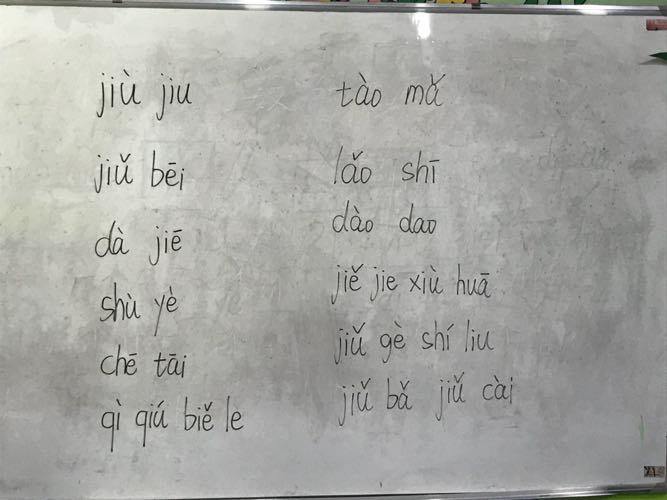 jiù jiu
jiǔ bēi
dà jiē
shù yè
chē tāi
qì qiú biě le
tào mǎ
lǎo shī
dào dao
jiě jie xiù huā
jiǔ gè shí liu
jiǔ bǎ jiǔ cài